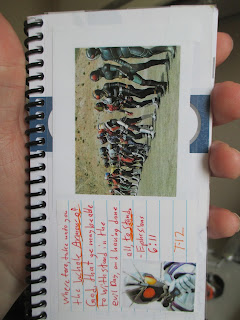 Where fore, take unto you
the whole Armour of
God that ye may be able
to withstand in the
evil Day, and having done
all, to stand.
- Ephesians
6:11
7:12